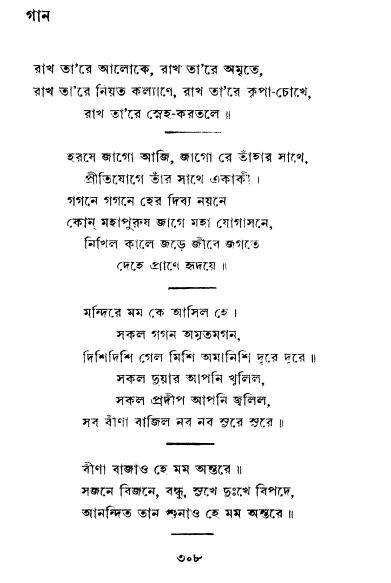 গান
রাখ তা'রে আলোকে, রাখ তা'রে অমৃতে,
রাখ তা'রে নিয়ত কল্যাণে, রাখ তা'রে কৃপা-চোখে,
রাখ তা'রে স্নেহ-করতলে॥
হরষে জাগো আজি, জাগো রে তাঁহার সাথে,
প্রীতিযোগে তাঁর সাথে একাকী।
গগনে গগনে হের দিব্য নয়নে
কোন্ মহাপুরুষ জাগে মহা যোগাসনে,
নিখিল কালে জড়ে জীবে জগতে
দেহে প্রাণে হৃদয়ে॥
মন্দিরে মম কে আসিল হে।
সকল গগন অমৃতমগন,
দিশিদিশি গেল মিশি অমানিশি দূরে দূরে॥
সকল দুয়ার আপনি খুলিল,
সকল প্রদীপ আপনি জ্বলিল,
সব বীণা বাজিল নব নব সুরে সুরে॥
বীণা বাজাও হে মম অন্তরে॥
সজনে বিজনে, বন্ধু, সুখে দুঃখে বিপদে,
আনন্দিত তান শুনাও হে মম অন্তরে॥
৩০৮